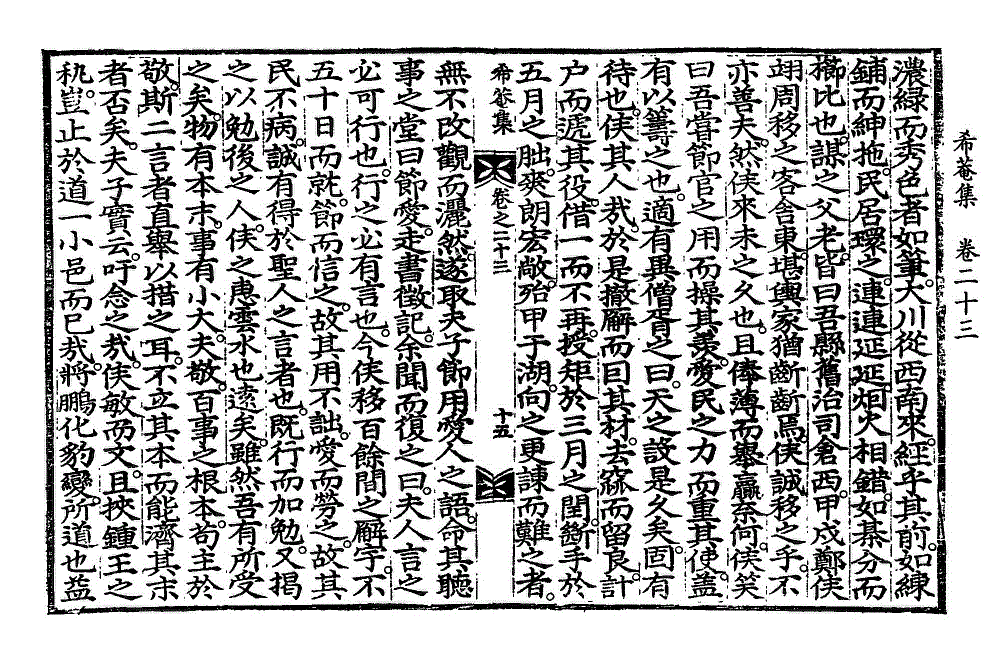 希菴集 卷二十三
濃綠而秀色者如筆大川從西南來經乎其前如練
鋪而紳拖民居環之連連延延烟火相錯如棊分而
櫛比也謀之父老皆曰吾縣舊治司倉西甲戍鄭侯
翊周移之客舍東堪輿家猶齗齗焉侯誠移之乎不
亦善夫然侯來未之久也且俸薄而擧羸奈何侯笑
曰吾嘗節官之用而操其羨愛民之力而重其使盖
有以籌之也適有異僧胥之曰天之設是久矣固有
待也侯其人㦲於是撤廨而因其材去窳而留良計
户而遞其役借一而不再授矩於三月之閏斷手於
五月之朏爽朗宏敞殆甲于湖向之更諫而難之者
希菴集 卷之二十三 十五
無不改觀而灑然遂取夫子節用愛人之語命其聽
事之堂曰節愛走書徵記余聞而復之曰夫人言之
必可行也行之必有言也今侯移百餘間之廨宇不
五十日而就節而信之故其用不詘愛而勞之故其
民不病誠有得於聖人之言者也旣行而加勉又揭
之以勉後之人侯之惠雲水也遠矣雖然吾有所受
之矣物有本末事有小大夫敬百事之根本苟主於
敬斯二言者直擧以措之耳不立其本而能濟其末
者否矣夫子實云吁念之㦲侯敏而文且挾鍾王之
秇豈止於道一小邑而已㦲將鵬化豹變所道也盖